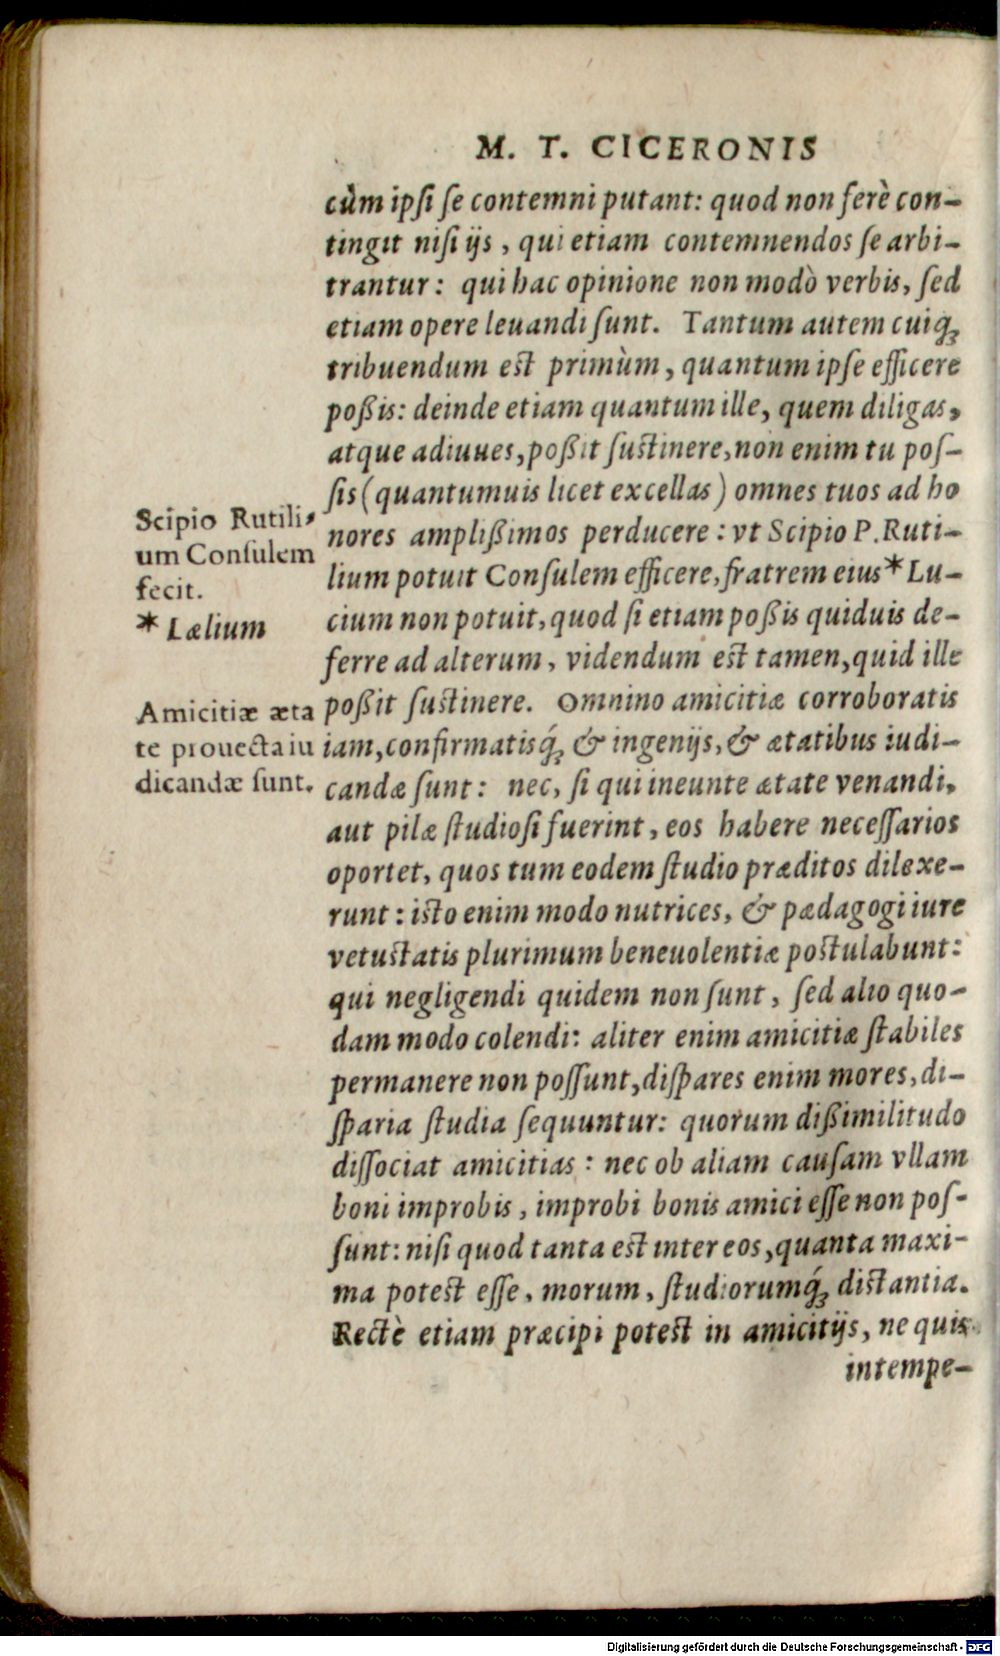 M. T. CICERONIS
cùm ipſi ſe contemni putant: quod non ferè con-
tingit niſi ijs, qui etiam contemnendos ſe arbi-
trantur: qui hac opinione non modò verbis, ſed
etiam opere leuandi ſunt. Tantum autem cuiq́;
tribuendum est primùm, quantum ipſe efficere
poßis: deinde etiam quantum ille, quem diligas,
atque adiuues, poßit ſustinere, non enim tu poſ-
ſis (quantumuis licet excellas) omnes tuos ad ho
nores amplißimos perducere: vt Scipio P. Ruti-
lium potuit Conſulem efficere, fratrem eius * Lu-
cium non potuit, quod ſi etiam poßis quiduis de-
ferre ad alterum, videndum est tamen, quid ille
poßit ſustinere. Omnino amicitiæ corroboratis
iam, confirmatisq́; & ingenijs, & ætatibus iudi-
candæ ſunt: nec, ſi qui ineunte ætate venandi,
aut pilæ ſtudioſi fuerint, eos habere neceſſarios
oportet, quos tum eodem ſtudio præditos dilexe-
runt: isto enim modo nutrices, & pædagogi iure
vetustatis plurimum beneuolentiæ postulabunt:
qui negligendi quidem non ſunt, ſed alio quo-
dam modo colendi: aliter enim amicitiæ ſtabiles
permanere non poſſunt, diſpares enim mores, di-
ſparia ſtudia ſequuntur: quorum dißimilitudo
diſſociat amicitias: nec ob aliam cauſam vllam
boni improbis, improbi bonis amici eſſe non poſ-
ſunt: niſi quod tanta est inter eos, quanta maxi-
ma potest eſſe, morum, ſtudiorumq́; distantia.
Rectè etiam præcipi potest in amicitijs, ne quis
intempe-
Scipio Rutili-
um Conſulem
fecit.
* Lælium
Amicitiæ æta
te prouecta iu
dicandæ ſunt.
Digitalisierung gefördert durch die Deutsche Forschungsgemeinschaft - DFG